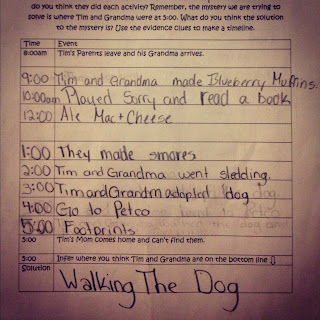 do you think they did each activity? Remember, the mystery we are trying to
solve is where Tim and Grandma were at 5:00. What do you think the solution
to the mystery is? Use the evidence clues to make a timeline.
Time Event
8:00am Tim's Parents leave and his Grandma arrives.
9:00 Tim and Grandma made Blueberry Muffins.
10:00am Played Sorry and read a book
12:00 Ate Mac + Cheese
1:00 They made smores
2:00 Tim and Grandma went sledding.
3:00 Tim and Grandm adopted 1 dog
4:00 Go to Petco
5:00 Footprints
5:00 Tim's Mom comes home and can't find them.
5:00 Infer where you think Tim and Grandma are on the bottom line
Solution Walking The Dog